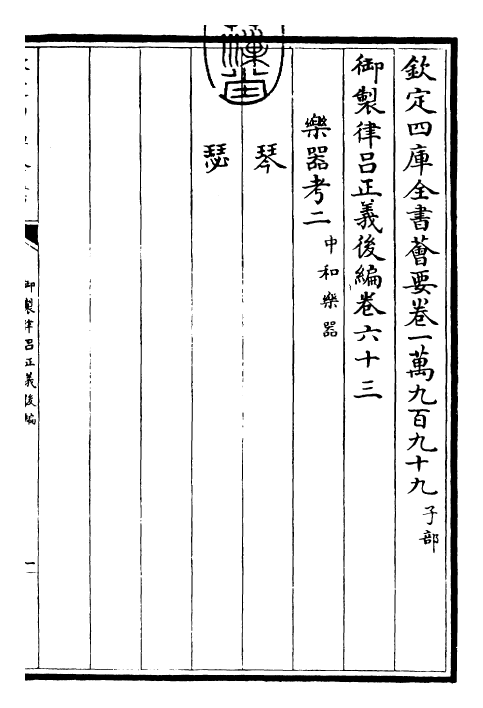 欽定四庫全書薈要卷一萬九百九十九 子部
御製律呂正義後編卷六十三
樂器考二 中和樂器
琴
瑟
御製律呂正義後編
一